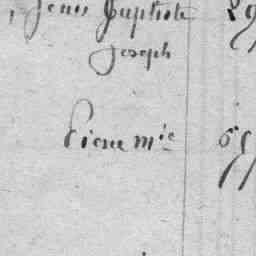 , Jean Baptiste 29
Joseph
Pierre Mie 65